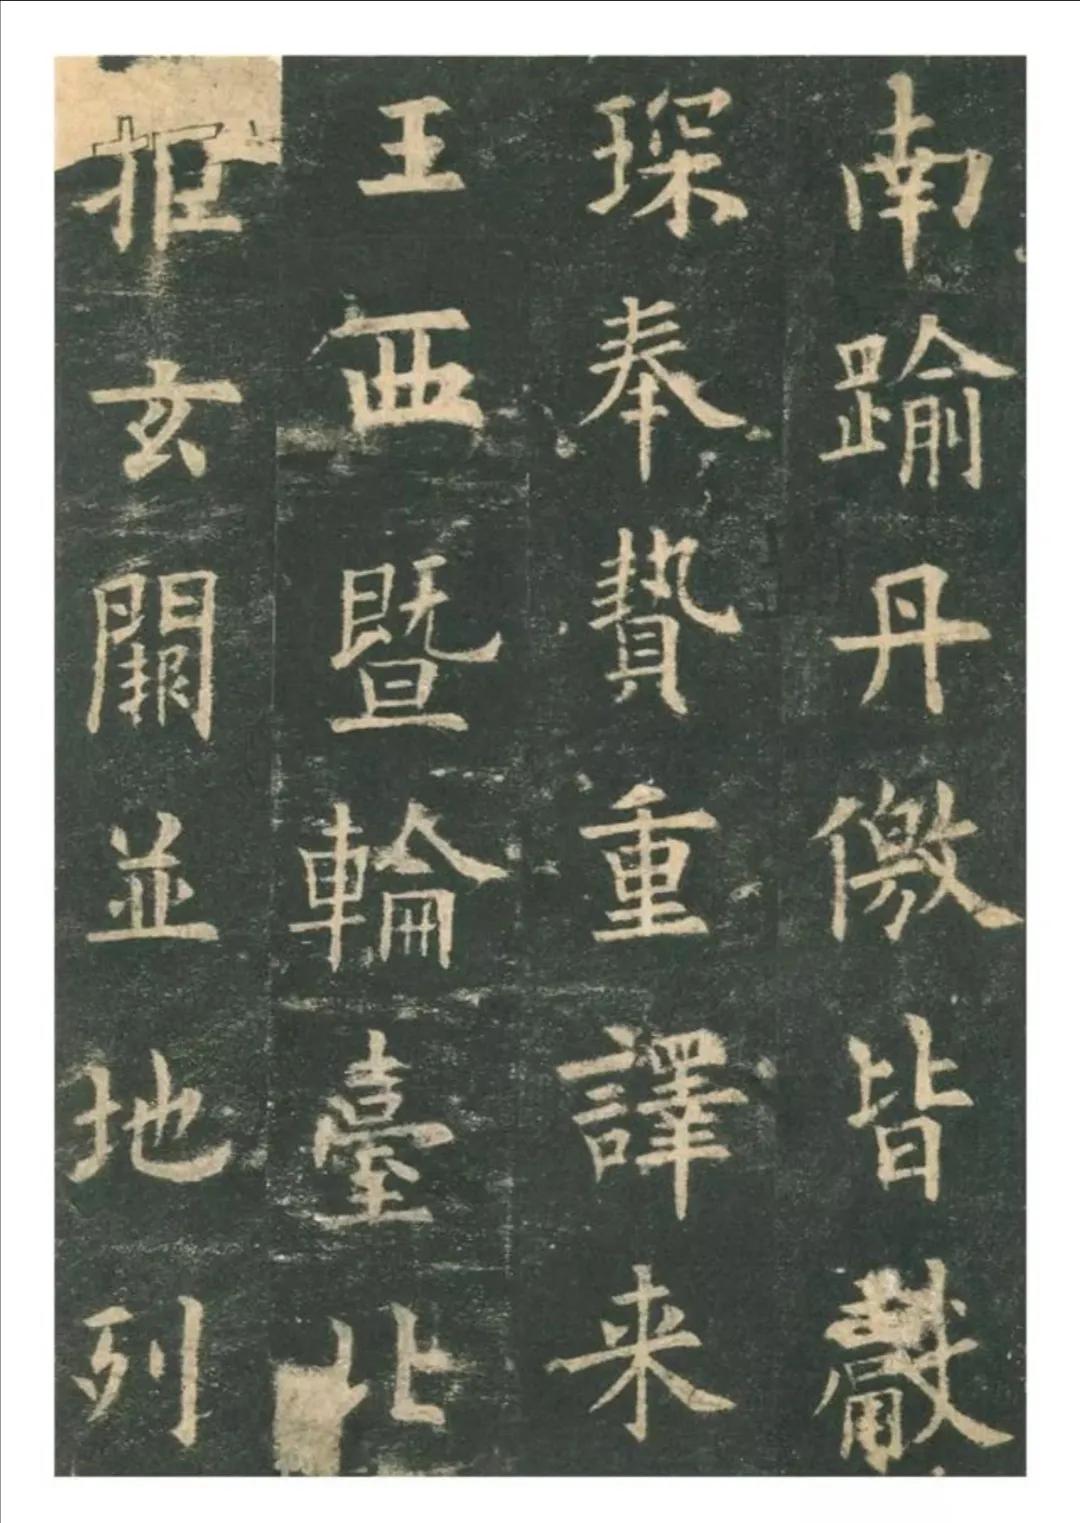 南踰丹徼皆獻
琛奉贄重譯来
王西暨輪臺北
拒玄闕並地列